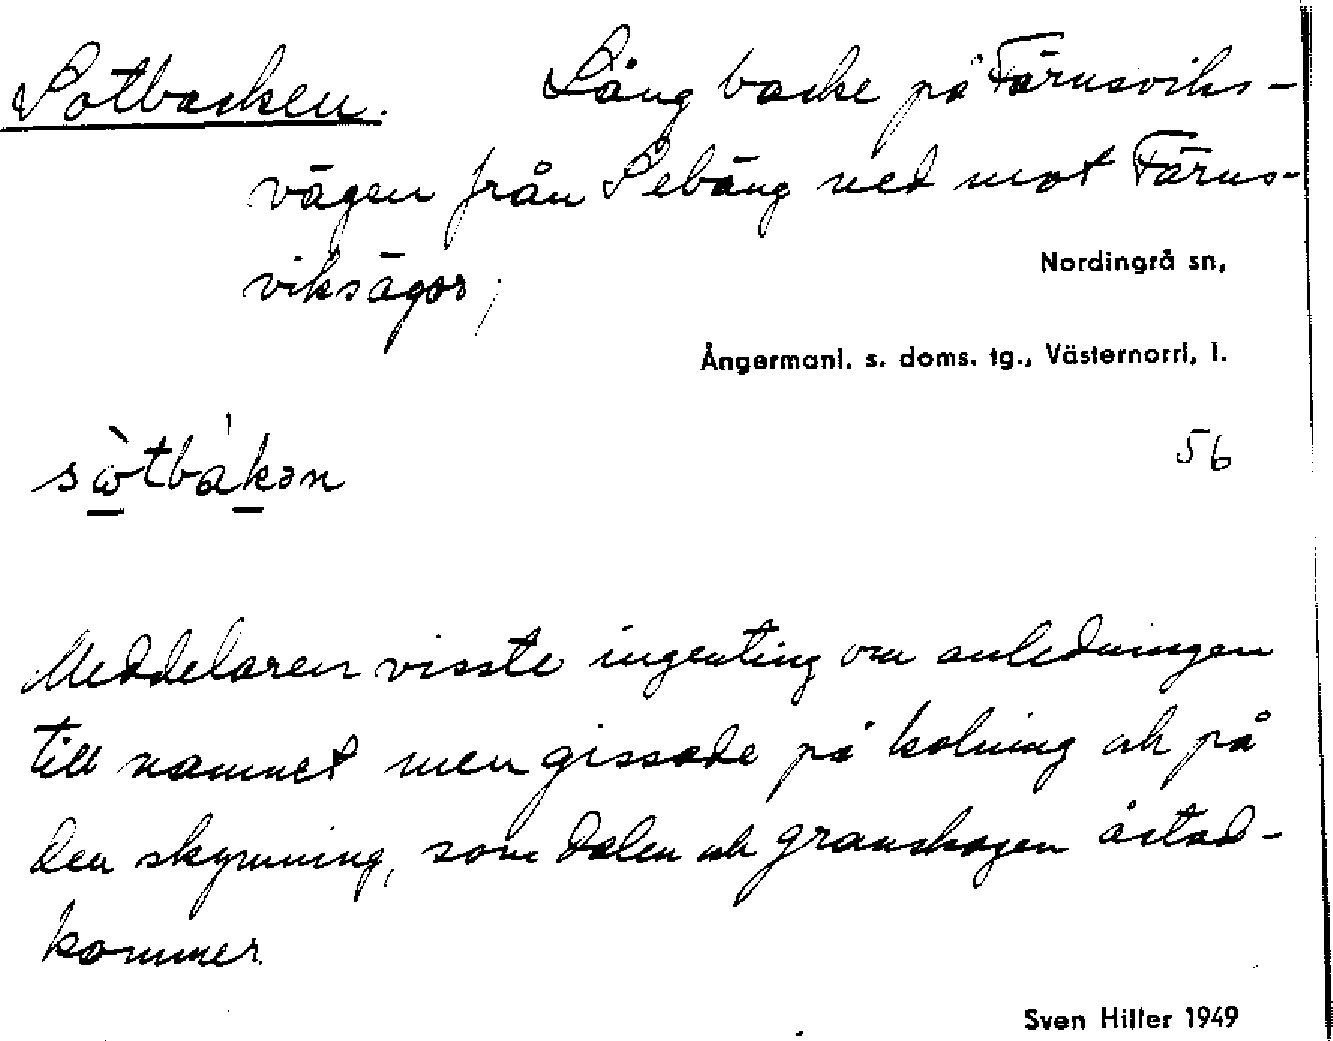 Sotbacken. Lång backe på Färnsviks-
vägen från Sebäng ned mot Färns-
viksägor;
Nordingrå sn,
Ångermanl. s. doms. tg., Västernorrl. l.
56
sòtbákən
Meddelaren visste ingenting om anledningen
till namnet men gissade på kolning och på
den skymning, som dalen och granskogen åstad-
kommer.
Sven Hiller 1949